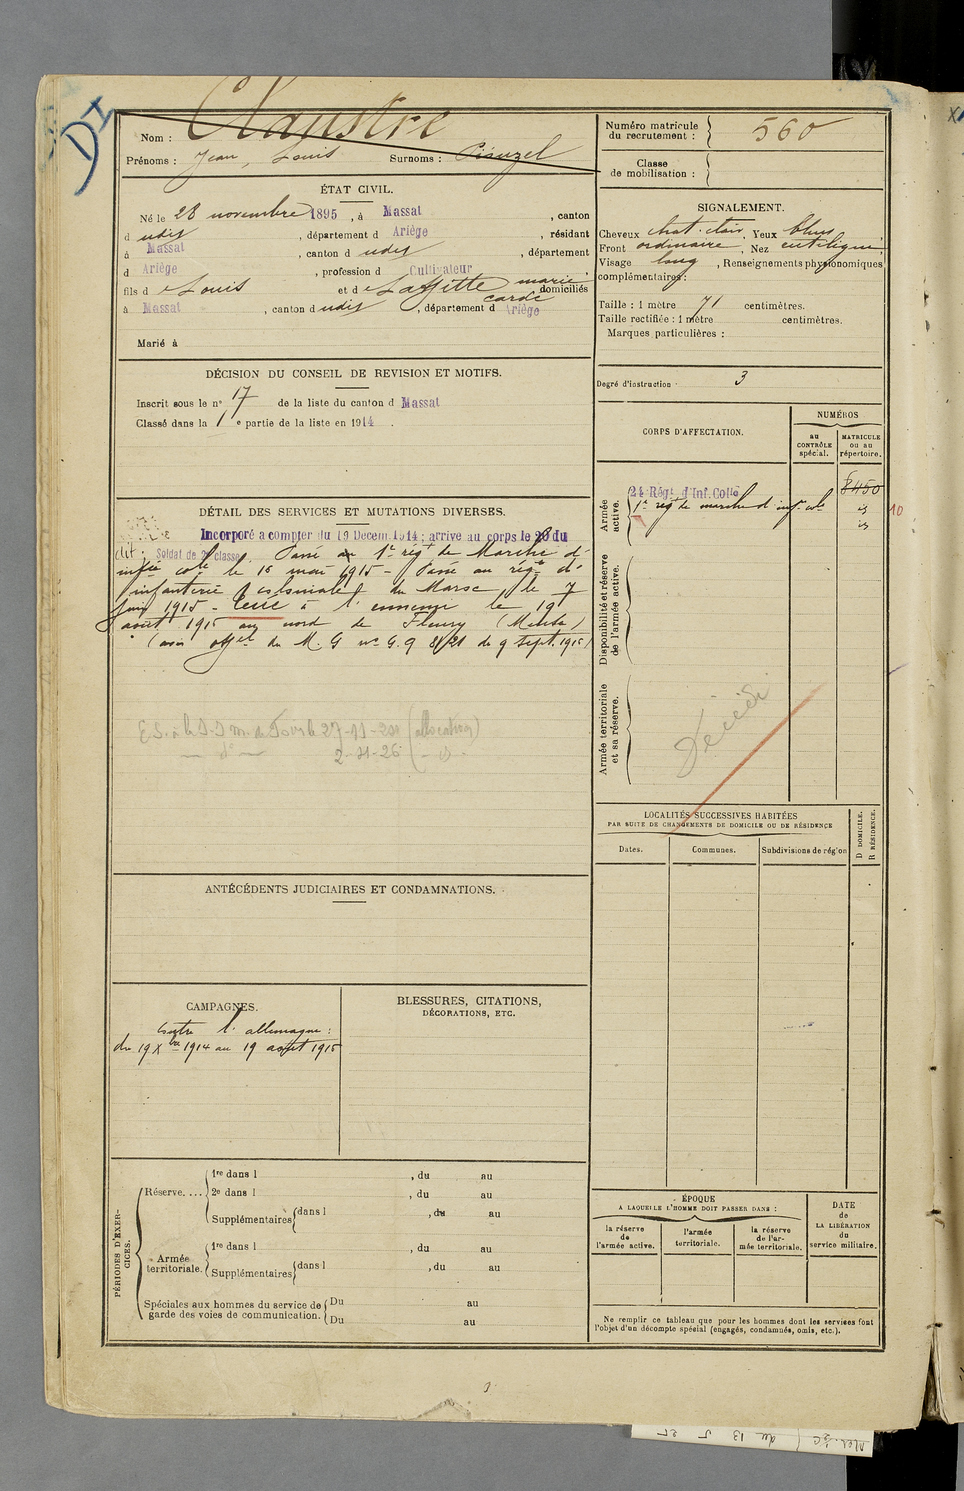 DI
Nom : Claustre
Prénoms : Jean, Louis Surnoms :
Numéro matricule du recrutement : 560
Classe de mobilisation :
ÉTAT CIVIL.
Né le 28 novembre 1895, à Massat, canton
d udit, département d Ariège, résidant
à Massat, canton d udit, département
d Ariège, profession d Cultivateur,
fils d e Louis et d e Laffitte marie domiciliés
carde
à Massat, canton d udit, département d Ariège
Marié à
SIGNALEMENT.
Cheveux chat. clair, Yeux bleus
Front ordinaire, Nez rectiligne
Visage long, Renseignements physionomiques
complémentaires :
Taille : 1 mètre 71 centimètres.
Taille rectifiée : 1 mètre centimètres.
Marques particulières :
Degré d'instruction 3
DÉCISION DU CONSEIL DE REVISION ET MOTIFS.
17
Inscrit sous le n° 17 de la liste du canton d Massat
Classé dans la 1 e partie de la liste en 1914.
CORPS D'AFFECTATION.
NUMÉROS
au CONTRÔLE spécial.
MATRICULE ou au répertoire.
Armée active.
24 Régt d'Inf. Colle 8450
1er régt de marche d'inf. cole id 10
id
Disponibilité et réserve de l'armée active.
Armée territoriale et sa réserve.
Décédé
DÉTAIL DES SERVICES ET MUTATIONS DIVERSES.
Incorporé à compter du 19 Décem. 1914 ; arrivé au corps le 20 du
dit. Soldat de 2e classe. Passé au 1er régt de Marche d'
infie cole le 16 mai 1915 - Passé au régt d'
infanterie coloniale du Maroc, le 7
juin 1915 - Tué à l'ennemi le 19
août 1915 au nord de Fleury (Meuse)
(avis offel du M. G n° G. 9 du 9 Sept. 1915)
27-11-20 (allocation)
d° 2-11-26
LOCALITÉS SUCCESSIVES HABITÉES
PAR SUITE DE CHANGEMENTS DE DOMICILE OU DE RÉSIDENCE
Dates. Communes. Subdivisions de région D DOMICILE. R RÉSIDENCE.
ANTÉCÉDENTS JUDICIAIRES ET CONDAMNATIONS.
CAMPAGNES.
Contre l'allemagne :
du 19 Xbre 1914 au 19 août 1915
BLESSURES, CITATIONS,
DÉCORATIONS, ETC.
PÉRIODES D'EXERCICES.
Réserve....
1re dans l , du au
2e dans l , du au
Supplémentaires dans l , du au
Armée territoriale.
1re dans l , du au
Supplémentaires dans l , du au
Spéciales aux hommes du service de garde des voies de communication.
Du au
Du au
ÉPOQUE
A LAQUELLE L'HOMME DOIT PASSER DANS :
la réserve de l'armée active.
l'armée territoriale.
la réserve de l'armée territoriale.
DATE de LA LIBÉRATION du service militaire.
Ne remplir ce tableau que pour les hommes dont les services font
l'objet d'un décompte spécial (engagés, condamnés, omis, etc.).